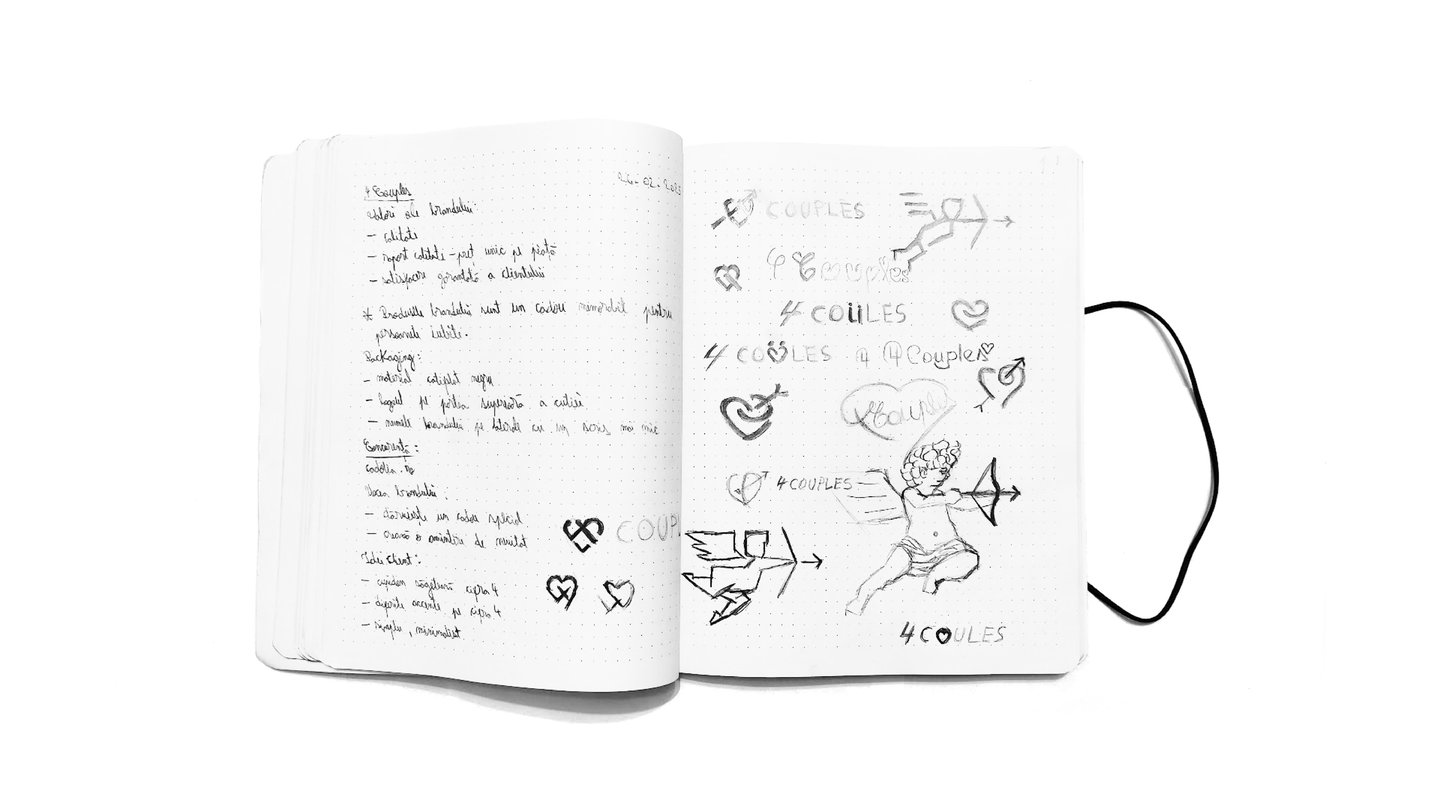 4 Couples
Valori ale brandului:
- calitate
- raport calitate-preț unic pe piață
- satisfacere garantată a clientului
* Produsele brandului sunt un cadou memorabil pentru
persoanele iubite.
Packaging:
- material catifelat negru
- logoul pe partea superioară a cutiei
- numele brandului pe laterale cu un scris mai mic
Concurență:
Vocea brandului:
- dăruiește un cadou special
- crează o amintire de neuitat
Idei client:
- cupidon săgetează cifra 4
- diferite accente pe cifra 4
- simplu, minimalist
COUPL
COUPLES
4 Couples
4 COULES
4 COLES
4 4 Couples
4 Couples
4 COUPLES
4 COULES